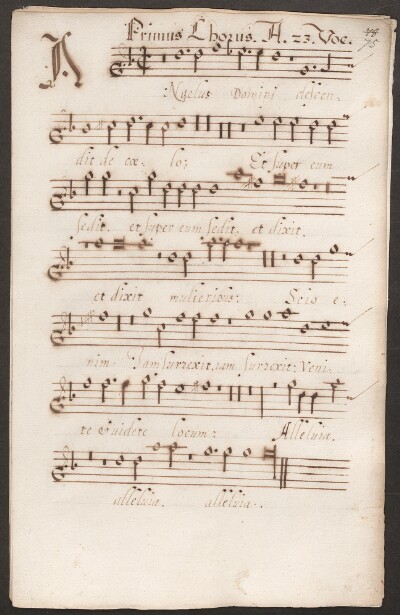 Primus Chorus. A. 23. Voc.
75
Angelus Domini descen.
dit de cœ. lo: Et super eum
sedit. et super eum sedit. et dixit.
et dixit mulieribus: Scio e.
nim. Jam surrexit, iam surrexit: Veni.
te & videte locum: Alleluia.
alleluia. alleluia.